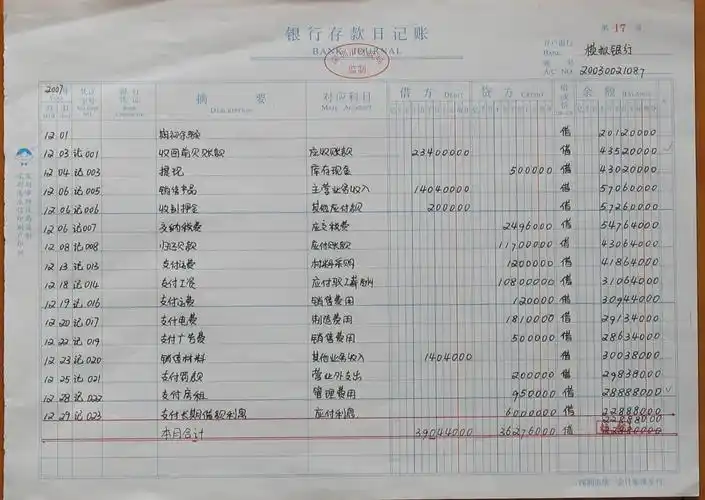 银行存款日记账
BANK JOURNAL
监制
第 17 页
开户银行 模拟银行
BANK
账号
A/C NO. 20030021087
2007年 凭证 银行凭证 摘要 对应科目 借方 贷方 借或贷 余额
DESCRIPTION DEBIT CREDIT BALANCE
12 01 期初余额 借 20120000
12 03 记001 收回前欠账款 应收账款 23400000 借 43520000
12 04 记003 提现 库存现金 500000 借 43020000
12 06 记005 销售产品 主营业务收入 14040000 借 57060000
12 06 记006 收到押金 其他应付款 200000 借 57260000
12 06 记007 交纳税费 应交税费 2496000 借 54764000
12 08 记008 归还欠款 应付账款 11700000 借 43064000
12 13 记013 支付运费 材料采购 1200000 借 41864000
12 18 记014 支付工资 应付职工薪酬 10800000 借 31064000
12 19 记016 支付运费 销售费用 120000 借 30944000
12 20 记017 支付电费 制造费用 1810000 借 29134000
12 22 记019 支付广告费 销售费用 500000 借 28634000
12 23 记020 销售材料 其他业务收入 1404000 借 30038000
12 25 记021 支付罚款 营业外支出 200000 借 29838000
12 28 记022 支付房租 管理费用 950000 借 28888000
12 29 记023 支付长期借款利息 应付利息 6000000 借 22888000
22888000
本月合计 39044000 36276000 借